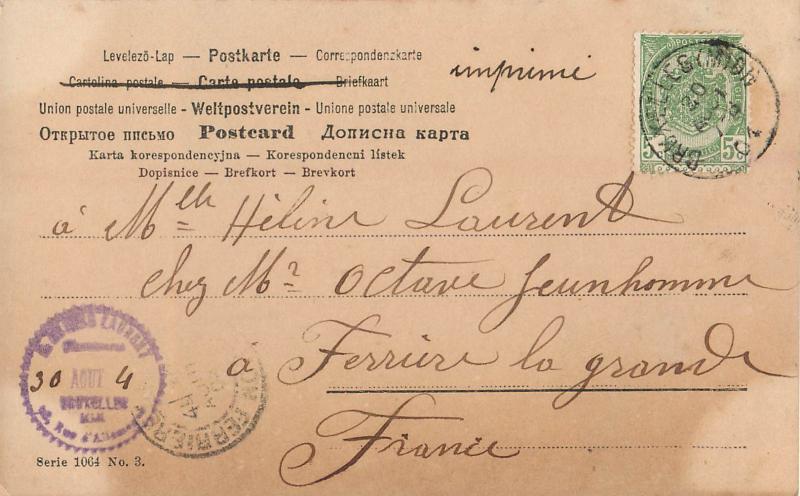 Levelező-Lap — Postkarte — Correspondenzkarte
Cartolina postale — Carte postale — Briefkaart
imprimé
Union postale universelle - Weltpostverein - Unione postale universale
Открытое письмо Postcard Дописна карта
Karta korespondencyjna — Korespondencni lístek
Dopisnice — Brefkort — Brevkort
5
à Melle Hélène Laurent
chez Mr Octave Jeunhomme
à Ferrière la grande
France
LAURENT
30 AOUT 4
BRUXELLES
Serie 1064 No. 3.